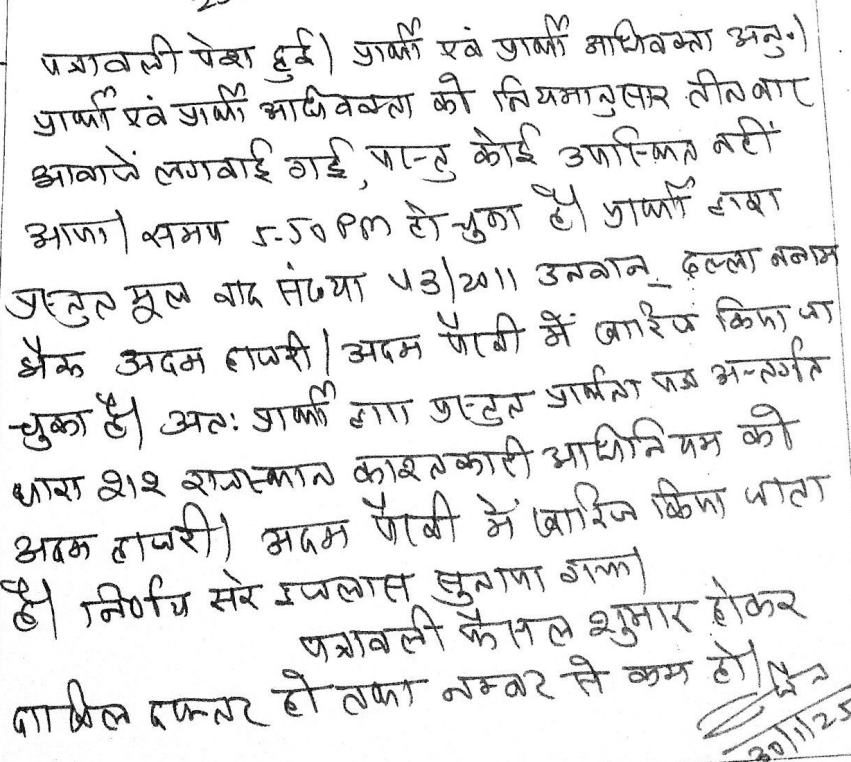 पत्रावली पेश हुई। प्रार्थी एवं प्रार्थी अधिवक्ता अनु.।
प्रार्थी एवं प्रार्थी अधिवक्ता को नियमानुसार तीन बार
आवाजें लगवाई गई, परन्तु कोई उपस्थित नहीं
आया। समय 5-50 PM हो चुका है। प्रार्थी द्वारा
प्रस्तुत मूल वाद संख्या 43/2011 उनवान दल्ला बनाम
बैंक अदम हाजरी। अदम पैरवी में खारिज किया जा
चुका है। अतः प्रार्थी द्वारा प्रस्तुत प्रार्थना पत्र अन्तर्गत
धारा 212 राजस्थान काश्तकारी अधिनियम को
अदम हाजरी। अदम पैरवी में खारिज किया जाता
है। निर्णय सरे इजलास सुनाया गया।
पत्रावली फैसल शुमार होकर
दाखिल दफ्तर हो तथा नम्बर से कम हो।
30/1/25